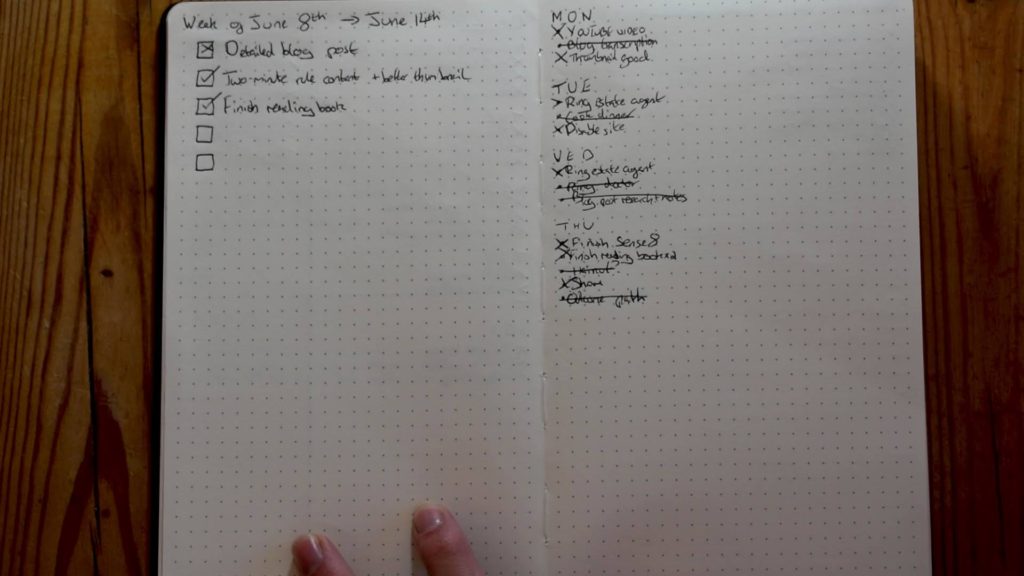 Week of June 8th → June 14th
Detailed blog post
Two-minute rule content + better thumbnail
Finish reading book
MON
YouTube video
Blog transcription
Thumbnail good
TUE
Ring estate augent
Cook dinner
Disable site
WED
Ring estate augent
Ring
Blog post research + notes
THU
Finish Sense8
Finish reading
Share